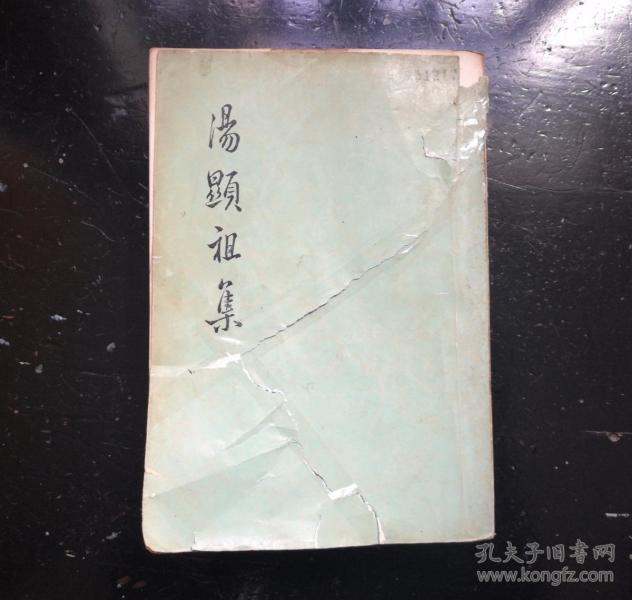 湯顯祖集
孔夫子旧書网
www.kongfz.com